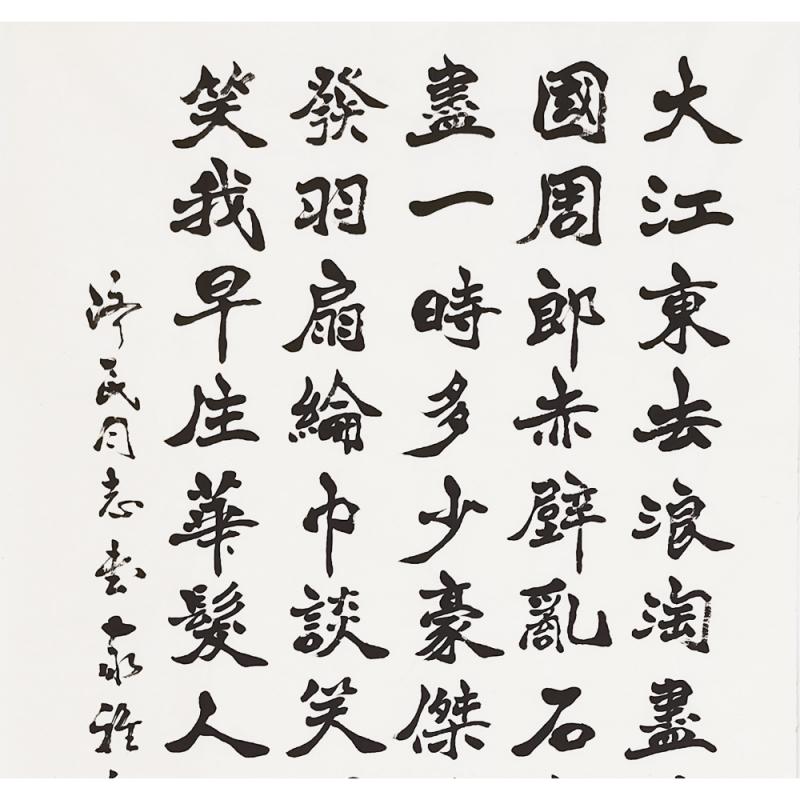 大江東去浪淘盡
國周郎赤壁亂石
畫一時多少豪傑
發羽扇綸巾談笑
笑我早生華髮人
民同志書家雅